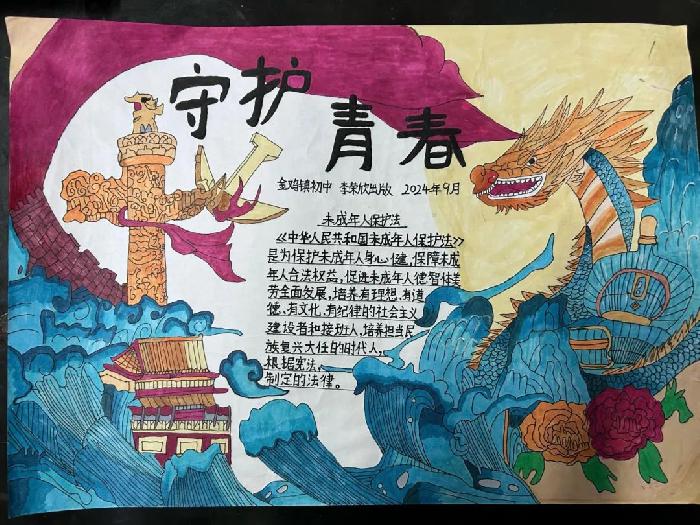 守护
青春
金鸡镇初中 李荣欣出版 2024年9月
未成年人保护法
《中华人民共和国未成年人保护法》
是为保护未成年人身心健,保障未成
年人合法权益,促进未成年人德智体美
劳全面发展,培养有理想、有道
德、有文化、有纪律的社会主义
建设者和接班人,培养担当民
族复兴大任的时代人,
根据宪法,
制定的法律。